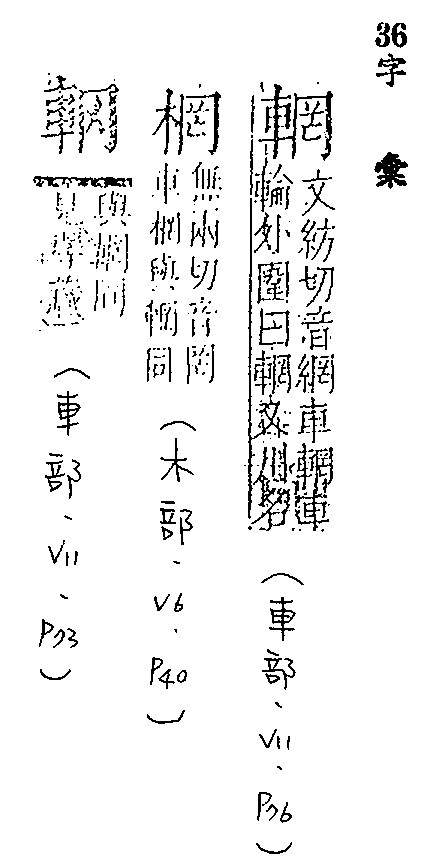 36字彙
輞
文紡切音網車輞車
輪外圍曰輞又州名
(車部、V11、P76)
棢
無兩切音罔
車棢與輞同
(木部、V6、P40)
與輞同
見
(車部、V11、P73)